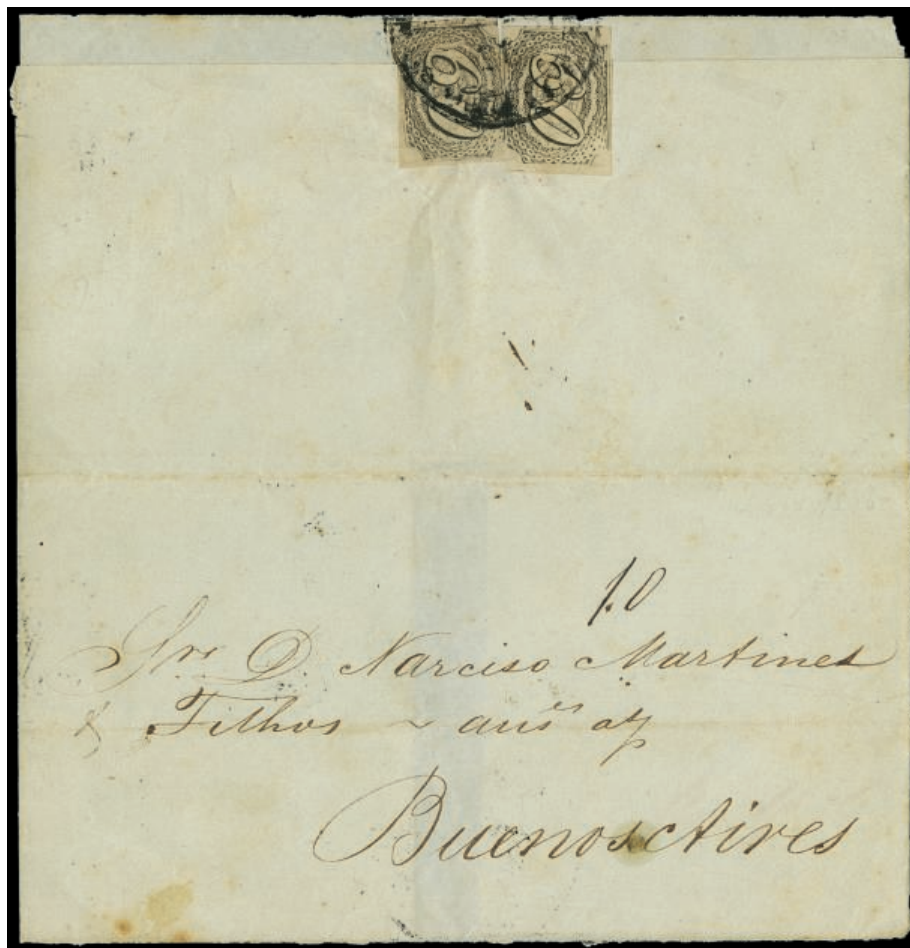 60 60
1.0
Sr. D. Narciso Martinez
& Filhos
Buenos Aires